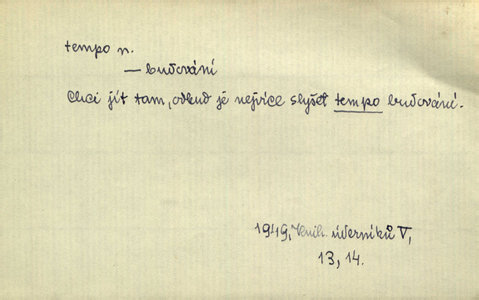 tempo n.
— budování
Chci jít tam, odkud je nejvíce slyšet tempo budování.
1949, Knih. úderníků V,
13, 14.